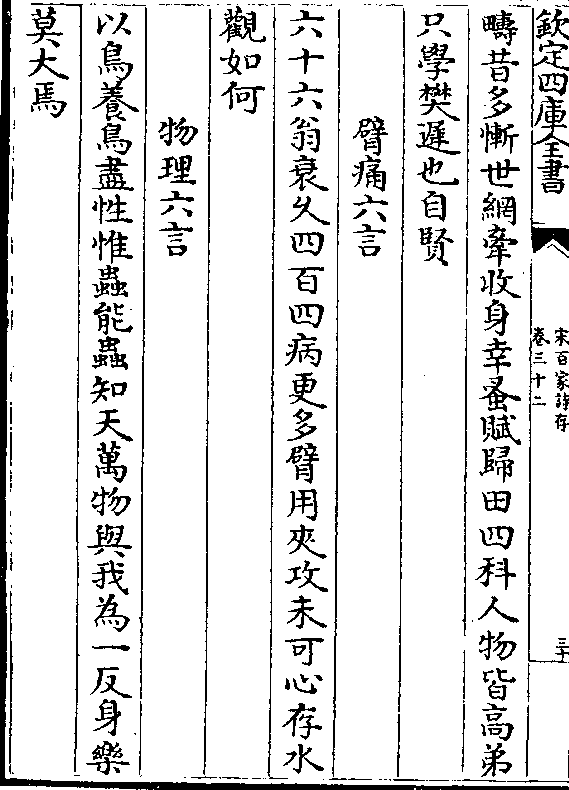 欽定四庫全書
宋百家詩存
卷三十二
三十
疇昔多慚世網牽收身幸蚤賦歸田四科人物皆高弟
只學樊遲也自賢
臂痛六言
六十六翁衰久四百四病更多臂用夾攻未可心存水
觀如何
物理六言
以鳥養鳥盡性惟蟲能蟲知天萬物與我為一反身樂
莫大焉